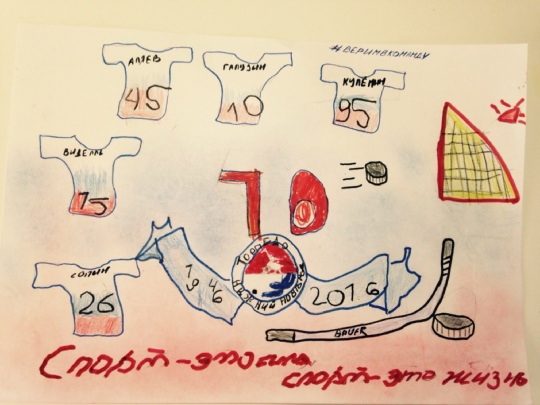 #ВЕРЬВКОМАНДУ
АЛЯЕВ
45
ГАЛУЗИН
10
КУЛЁМИН
95
ВИДЕЛЛЬ
15
70
ТОРПЕДО
НИЖНИЙ НОВГОРОД
1946
2016
СОПИН
26
BAUER
Спорт-это сила
спорт-это жизнь